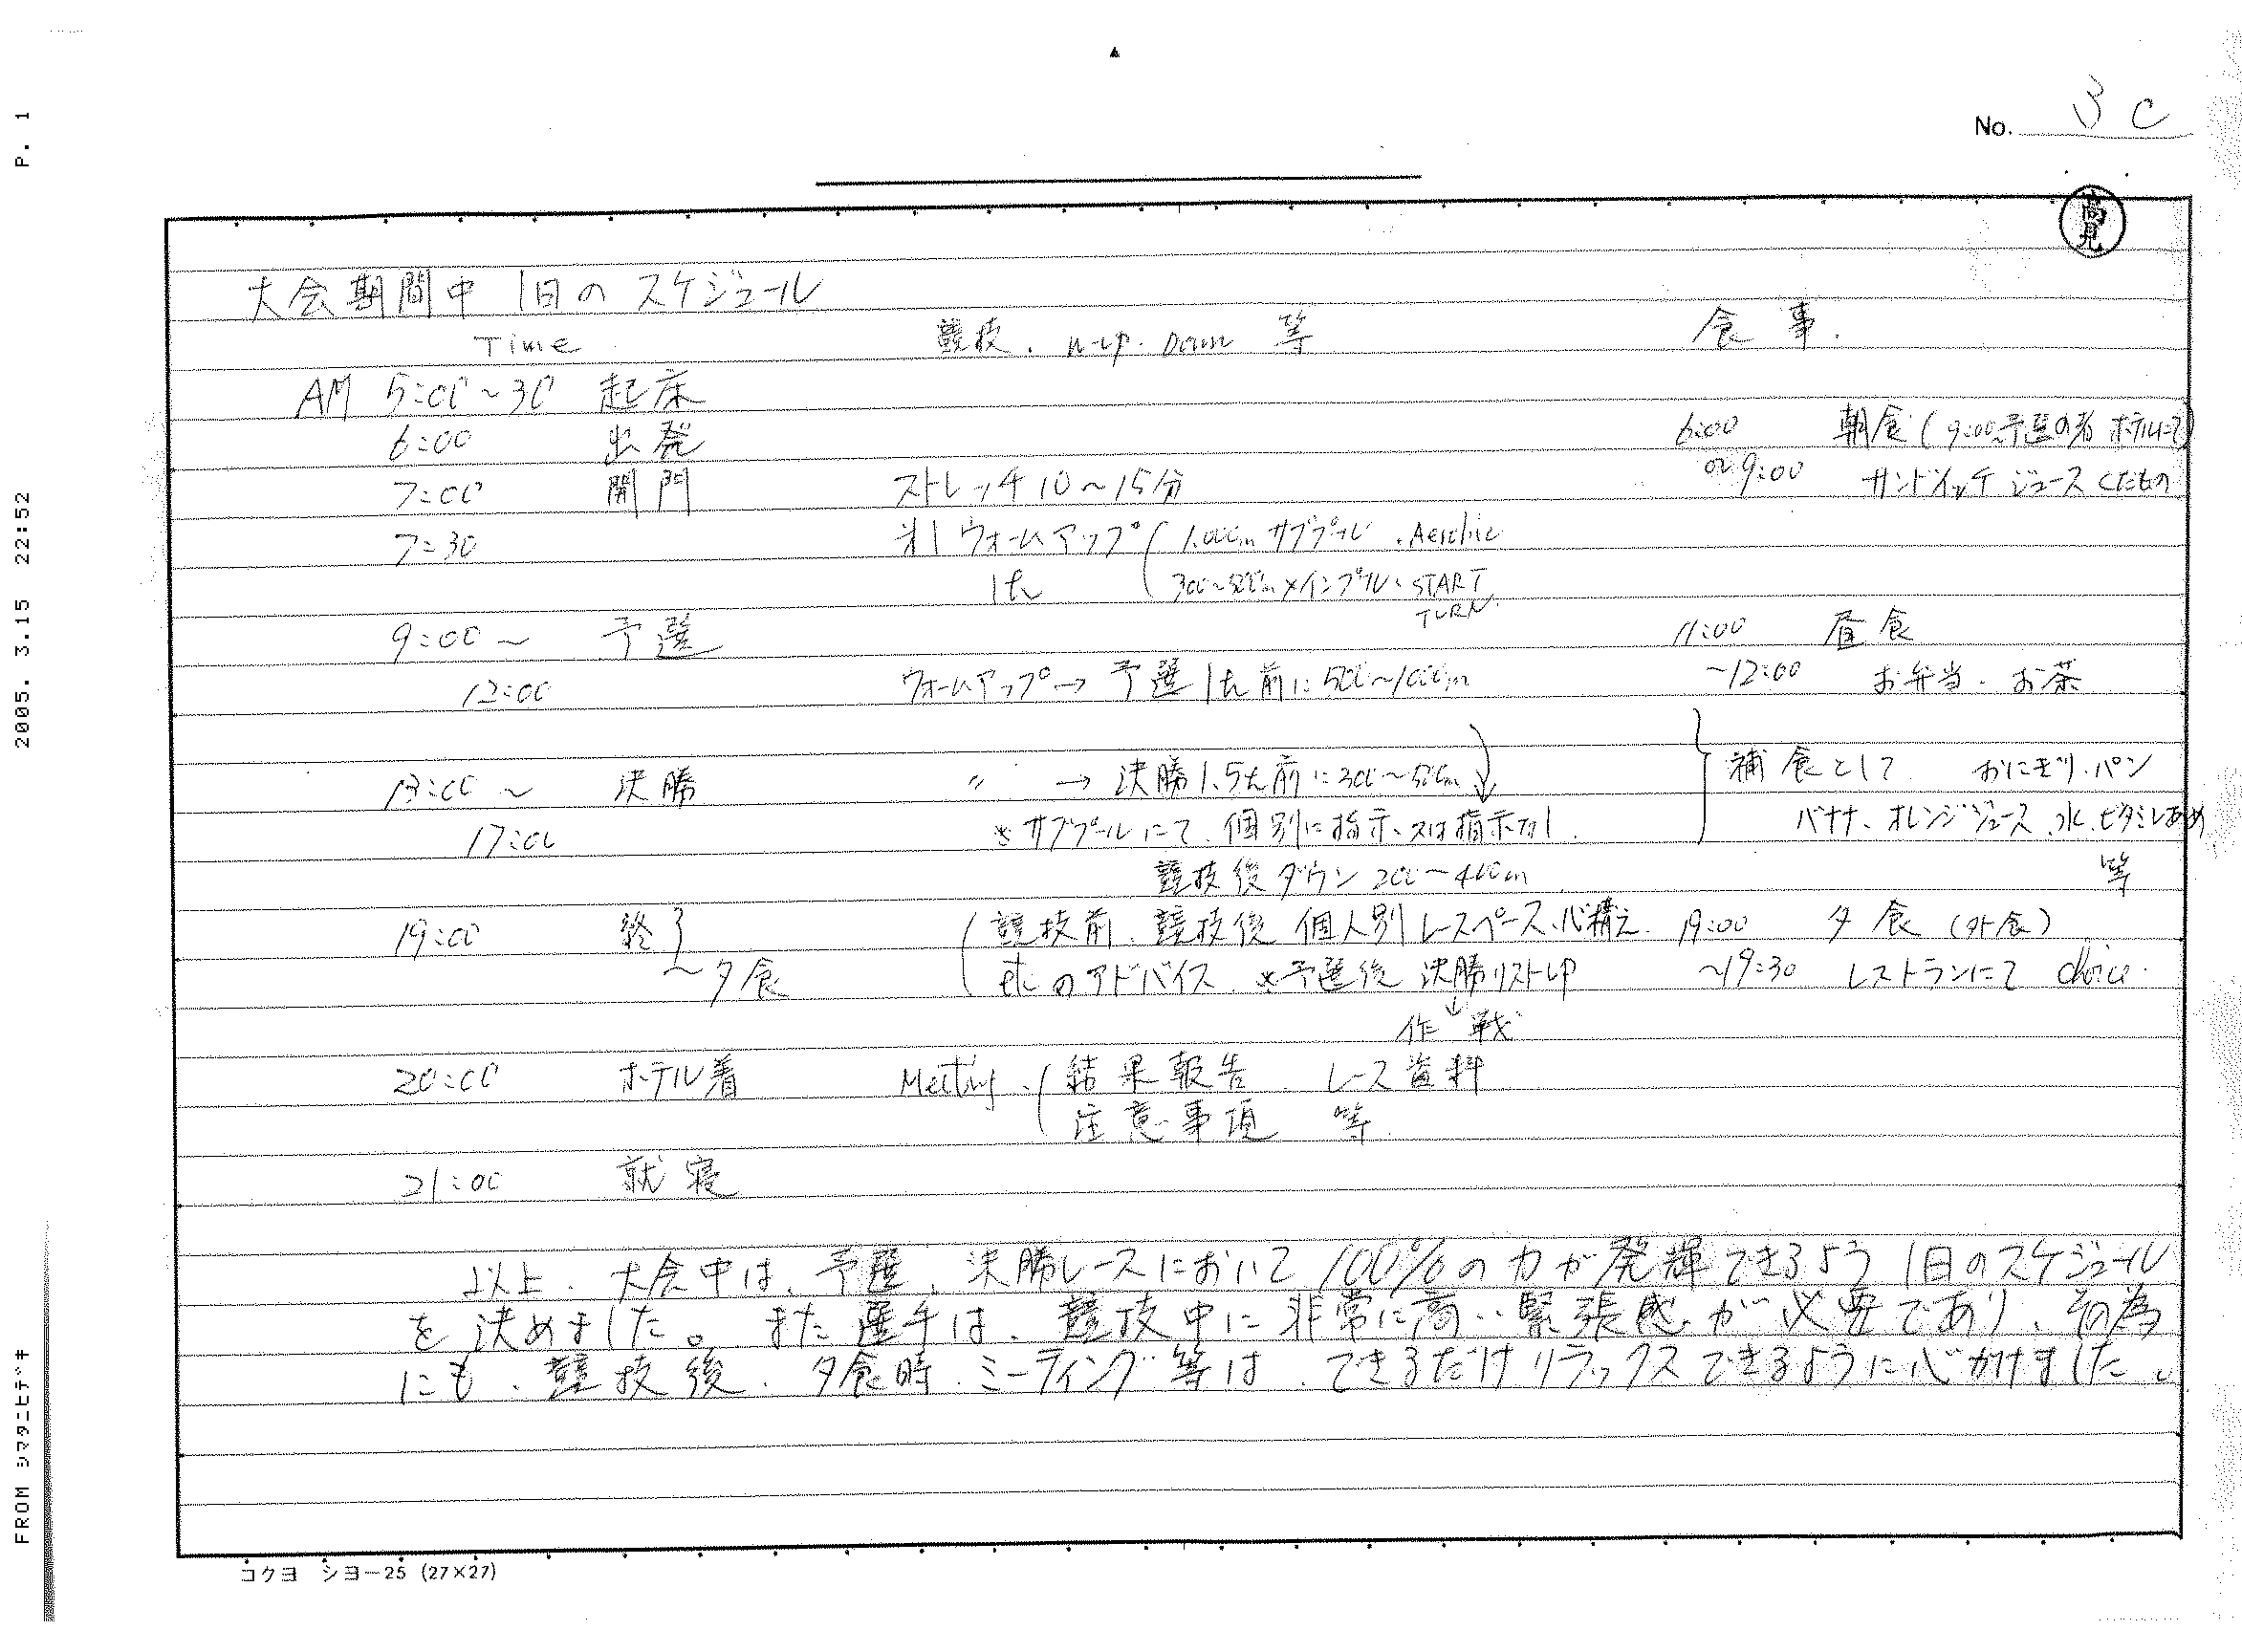 P. 1
2005. 3.15 22:52
FROM シマタニヒデキ
No. 3C
高見
大会期間中 1日の スケジュール
Time 競技. W-up. Down 等 食事.
AM 5:00~30 起床
6:00 出発 6:00 朝食(9:00予選の者 ホテルにて)
7:00 開門 ストレッチ10~15分 or 9:00 サンドイッチ ジュース くだもの
7:30 ウォームアップ 1.000m サブプール . Aerobic
1h 300~500m メインプール、START
TURN.
9:00~ 予選 11:00 昼食
12:00 ウォームアップ→ 予選1h前に500~1000m ~12:00 お弁当. お茶
13:00~ 決勝 〃 → 決勝1.5h前に300~500m 補食として おにぎり. パン
17:00 ※サブプールにて、個別に指示、又は指示なし. バナナ、オレンジジュース、水、ビタミンあめ
競技後ダウン 200~400m 等
19:00 終 競技前、競技後 個人別 レースペース、心構え 19:00 夕食 (外食)
~夕食 etc のアドバイス. ※予選後 決勝リストup ~19:30 レストランにて choice.
↓
作戦
20:00 ホテル着 Meeting. 結果報告 レース資料
注意事項 等
21:00 就寝
以上、大会中は、予選、決勝レースにおいて 100%の力が発揮できるよう 1日のスケジュール
を決めました。また選手は、競技中に非常に高い緊張感が必要であり、その為
にも、競技後、夕食時、ミーティング等は、できるだけリラックスできるように心がけました。
コクヨ シヨ-25 (27×27)